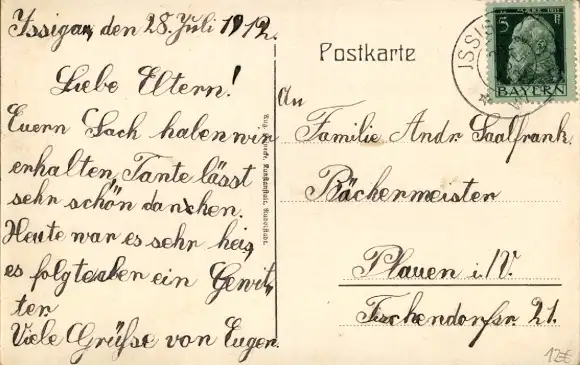 Issigau, den 28. Juli 1912.
Liebe Eltern!
Euern Sach haben wir
erhalten, Tante lässt
sehr schön danken.
Heute war es sehr heis,
es folgte aber ein Gewit-
ter
Viele Grüße von Eugen.
Postkarte
An
Familie Andr. Saalfrank.
Bäckermeister
Plauen i./V.
Fischendorfsr. 21.
5 Pf
BAYERN
12EE